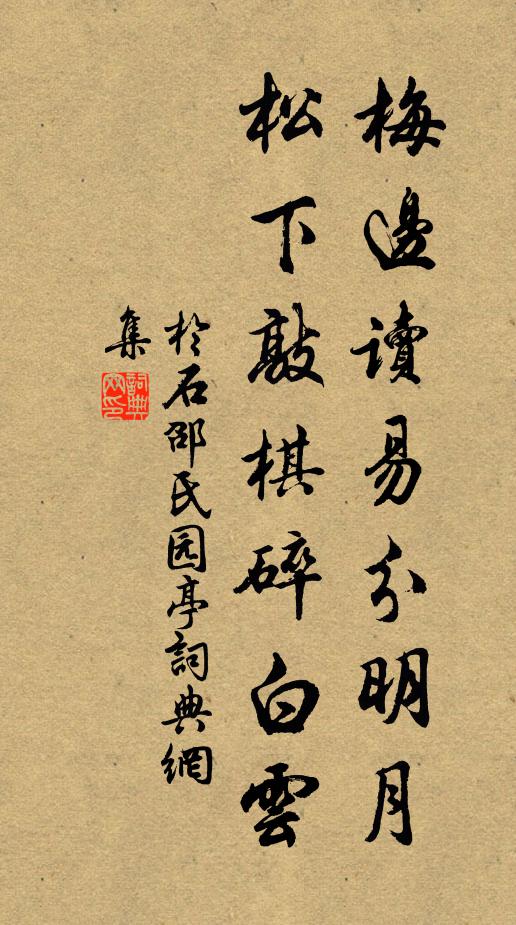 梅邊讀易分明月
松下敲棋碎白雲
於石邵氏园亭詞典網
集
詞典網印